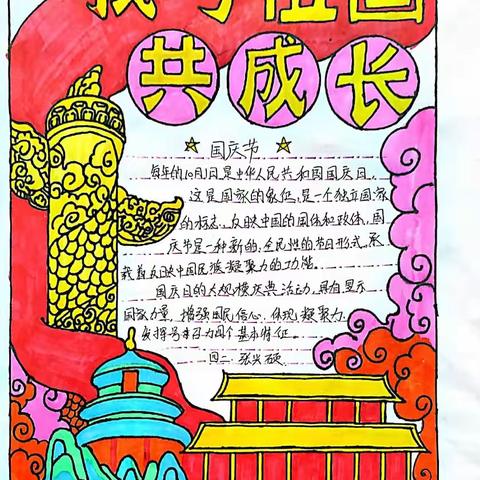 我与祖国
共成长
国庆节
每年的10月1日是中华人民共和国国庆日,
这是国家的象征,是一个独立国家
的标志,反映中国的国体和政体,国
庆节是一种新的,全民性的节日形式,承
载着反映中国民族凝聚力的功能。
国庆日的大规模庆典活动,具有显示
国家力量,增强国民信心,体现凝聚力,
发挥号召力四个基本特征。
四二 张兴硕